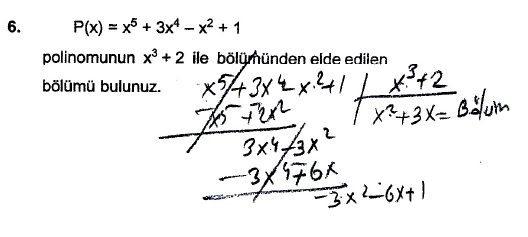 6. P(x) = x⁵ + 3x⁴ – x² + 1
polinomunun x³ + 2 ile bölümünden elde edilen
bölümü bulunuz.
x⁵+3x⁴-x²+1 | x³+2
-x⁵+2x² x²+3x= Bölüm
3x⁴-3x²
-3x⁴+6x
-3x²-6x+1